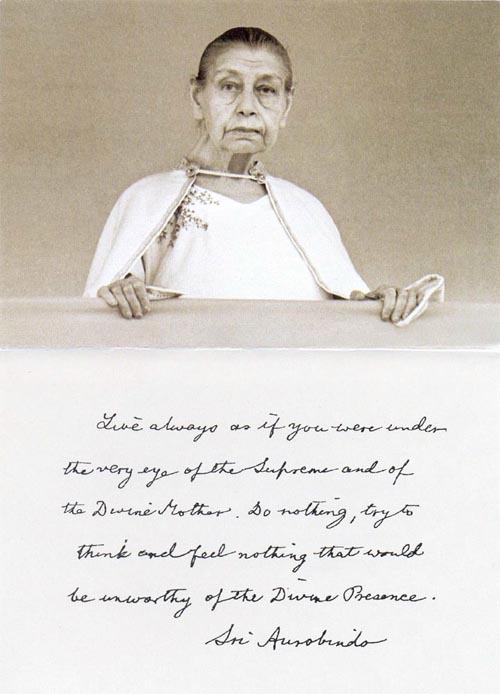 Live always as if you were under
the very eye of the Supreme and of
the Divine Mother. Do nothing, try to
think and feel nothing that would
be unworthy of the Divine Presence.
Sri Aurobindo